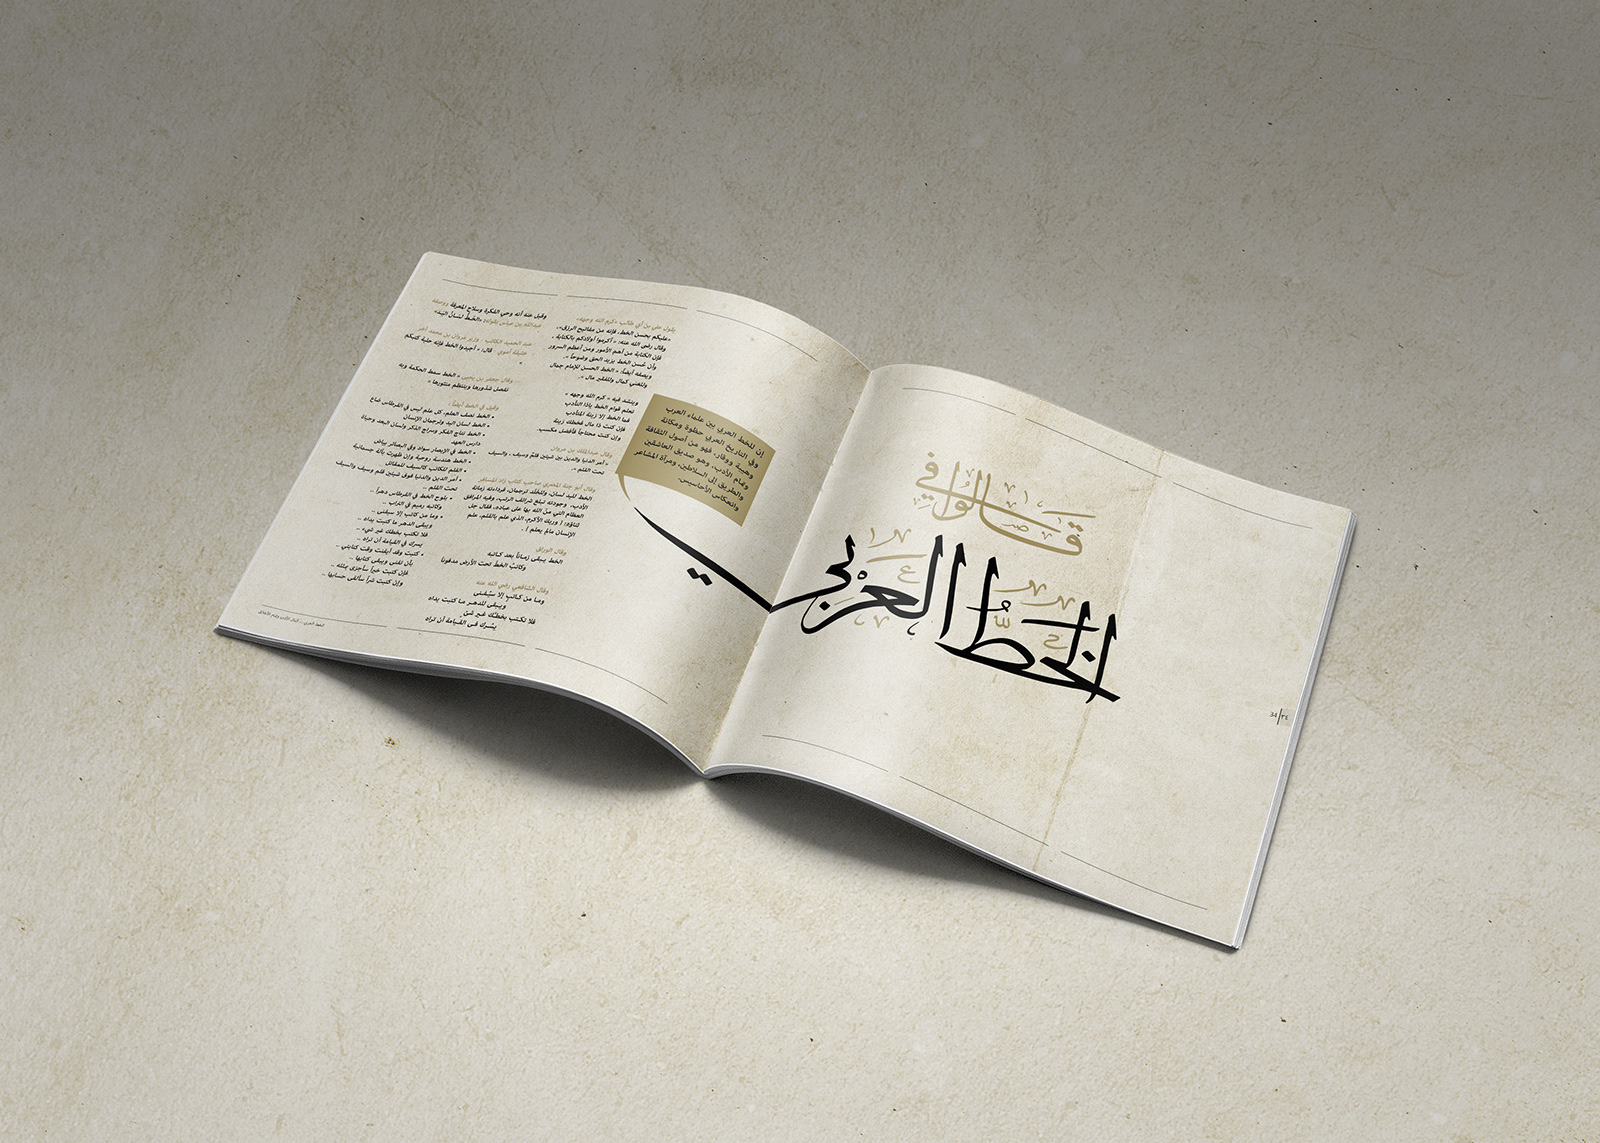 قالوا في
الخط العربي
34|٣٤
إن للخط العربي بين علماء العرب
وفي التاريخ العربي حظوة ومكانة
وهيبة ووقار، فهو من أصول الثقافة
وتمام الأدب، وهو صديق العاشقين
والطريق إلى السلاطين، ومرآة المشاعر
وانعكاس الأحاسيس.
يقول علي بن أبي طالب «كرم الله وجهه»
«عليكم بحسن الخط، فإنه من مفاتيح الرزق»،
وقال رضي الله عنه: « أكرموا أولادكم بالكتابة ،
فإن الكتابة من أهم الأمور ومن أعظم السرور
وأن حُسن الخط يزيد الحق وضوحاً ».
ويصفه أيضاً: « الخط الحسن للإمام جمال
وللغني كمال وللفقير مال ».
وينشد فيه « كرم الله وجهه »
تعلم قوام الخط ياذا التأدب
فما الخط إلا زينة المتأدب
فإن كنت ذا مال فخطك زينة
وإن كنت محتاجاً فأفضل مكسب.
وقال عبدالملك بن مروان
« أمر الدنيا والدين بين شيئين قلم وسيف ، والسيف
تحت القلم ».
الخط لليد لسان، وللخلد ترجمان، فرداءته زمانة
الأدب، وجودته تبلغ شرائف الرتب، وفيه المرافق
العظام التي من الله بها على عباده، فقال جل
ثناؤه: ( وربك الأكرم، الذي علم بالقلم، علم
الإنسان مالم يعلم ) .
وقال الوراق
الخط يبقى زماناً بعد كاتبه
وكاتبُ الخط تحت الأرض مدفونا
وقال الشافعي رضي الله عنه
وما من كاتبٍ إلا سيُفنى
ويبقى للدهر ما كتبت يداه
فلا تكتب بخطك غير شئ
يسُرك في القيامة أن تراه
وقيل عنه أنه وحي الفكرة وسلاح المعرفة ووصفه
عبدالله بن عباس بقوله: «الخطُّ لسانُ اليَد»
عبد الحميد الكاتب - وزير مروان بن محمد آخر
خليفة أموي - قال: « أجيدوا الخط فإنه حلية كتبكم
»
وقال جعفر بن يحيى « الخط سمط الحكمة وبه
تفصل شذورها وينتظم منثورها »
وقيل في الخط أيضاً:
• الخط نصف العلم، كل علم ليس في القرطاس ضاع
• الخط لسان اليد وترجمان الإنسان
• الخط نتاج الفكر وسراج الذكر ولسان البعد وحياة
دارس العهد
• الخط في الإبصار سواد وفي البصائر بياض
• الخط هندسة روحية وإن ظهرت بآلة جسمانية
• القلم للكاتب كالسيف للمقاتل
• أمر الدين والدنيا فوق شيئين قلم وسيف والسيف
تحت القلم ..
• يلوح الخط في القرطاس دهراً ..
وكاتبه رميم في التراب ..
• وما من كاتب إلا سيفنى ..
ويبقى الدهر ما كتبت يداه ..
فلا تكتب بخطك غير شيء ..
يسرك في القيامة أن تراه ..
• كتبت وقد أيقنت وقت كتابتي ..
بأن تفنى ويبقى كتابها ..
فإن كتبت خيراً سأجزى بمثله ..
وإن كتبت شراً سألقى حسابها ..